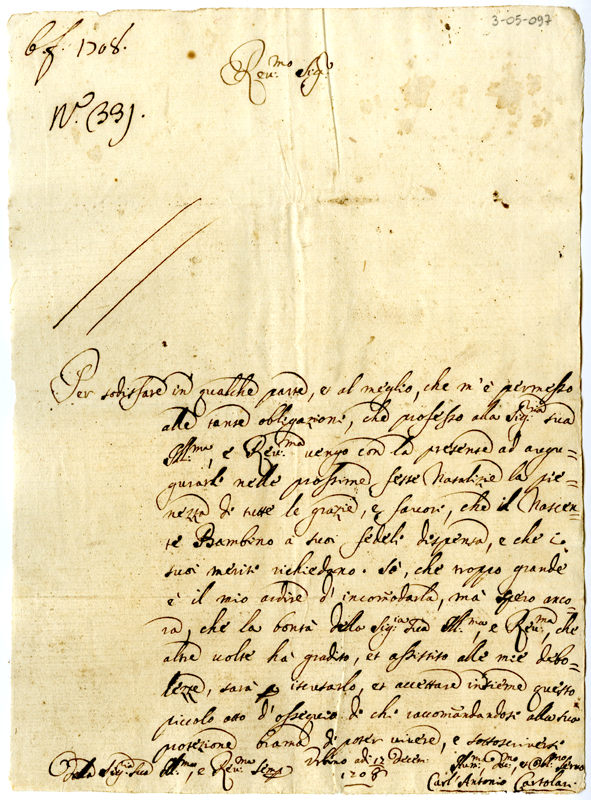 3-05-097
1708.
Rev.mo Sig.r
N.o 331.
Per sodisfare in qualche parte, et al meglio, che m'è permesso
alle tante obligazioni, che professo alla Sig.ria sua
Ill.ma, e Rev.ma vengo con la presente ad augu-
gurarle nelle prossime feste Natalizie la pie-
nezza di tutte le grazie, e favori, che il Nascen-
te Bambino a suoi fedeli dispensa, e che i
suoi meriti richiedono. Sò, che troppo grande
è il mio ardire d'incomodarla, mà spero anco-
ra, che la bontà della Sig.ria sua Ill.ma, e Rev.ma, che
altre volte hà gradito, et assistito alle mie debo-
lezze, sarà p iscusarlo, et accettare insieme questo
piccolo atto d'ossequio di chi raccomandandosi alla sua
protezione brama di poter vivere, e sottoscriversi
Della Sig.ria Sua Ill.ma, e Rev.ma semp
Urbino adi 17 Decem.
1708
Hum.mo e Obl.mo Servo
Carl'Antonio Cartolari